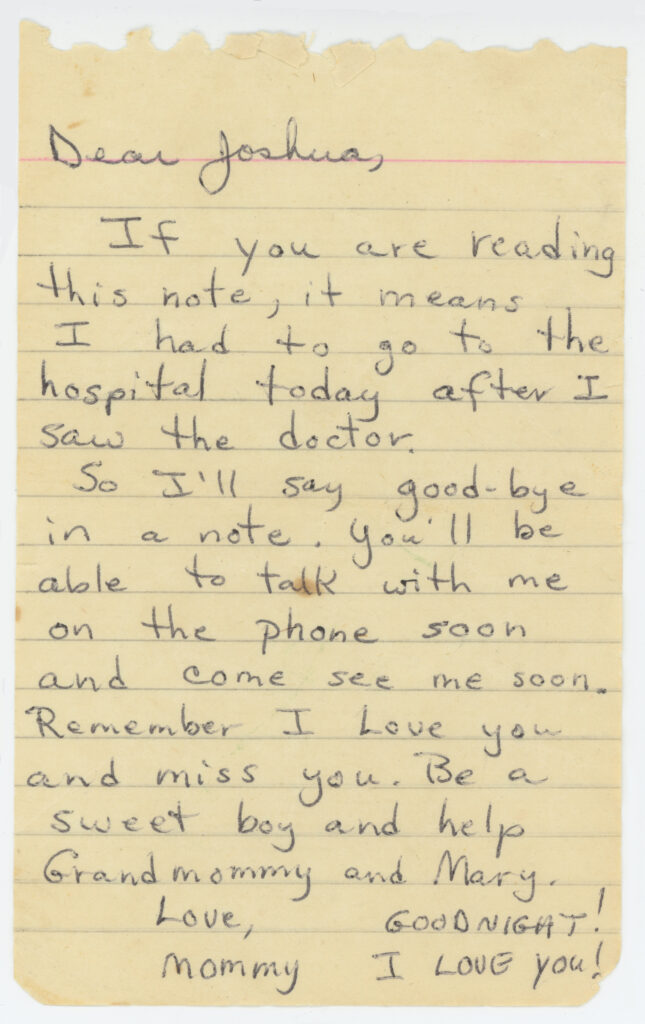 Dear Joshua,
If you are reading
this note, it means
I had to go to the
hospital today after I
saw the doctor.
So I'll say good-bye
in a note. You'll be
able to talk with me
on the phone soon
and come see me soon.
Remember I Love you
and miss you. Be a
sweet boy and help
Grandmommy and Mary.
Love, GOODNIGHT!
Mommy I LOVE you!